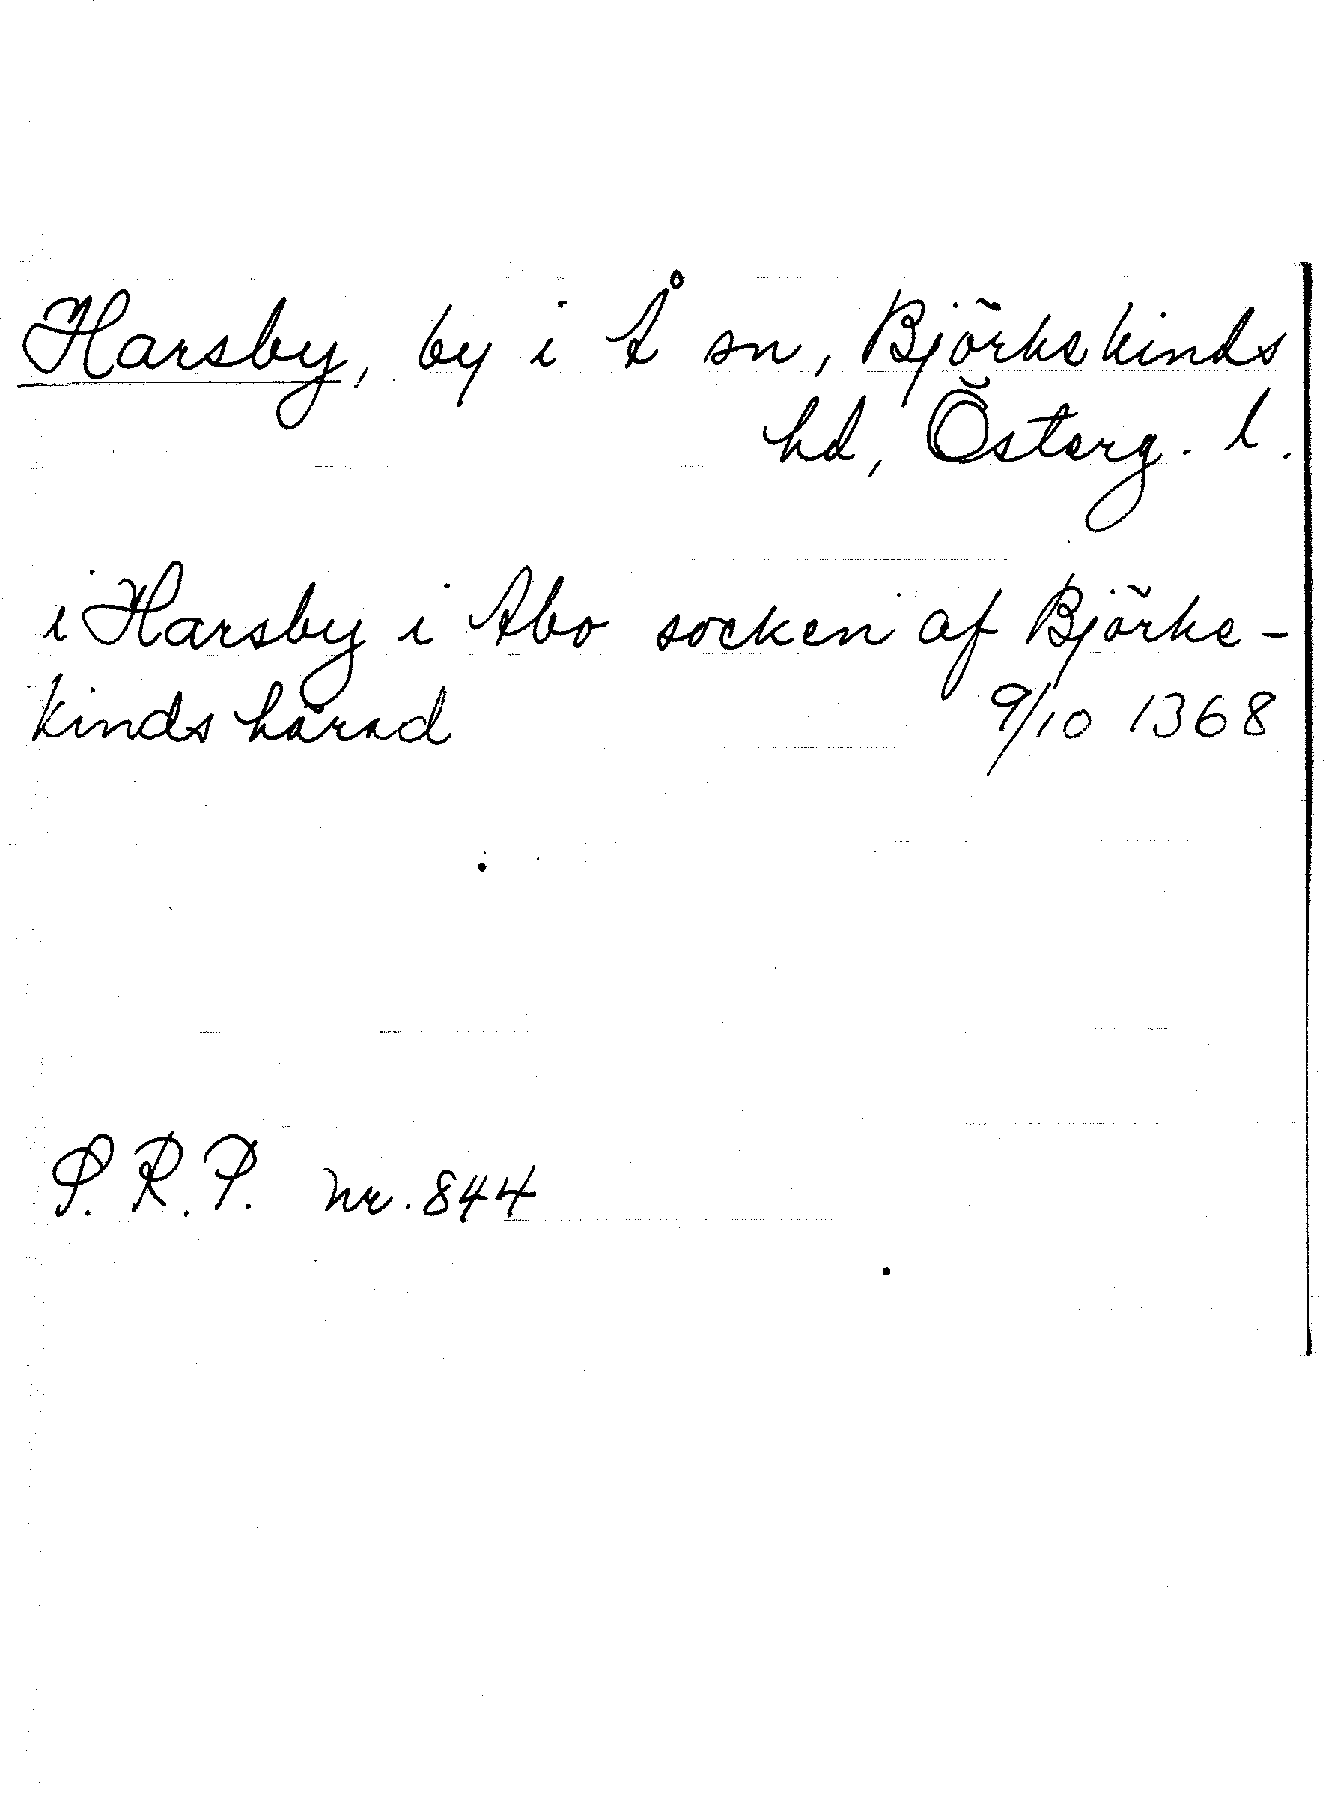 Harsby, by i Å sn, Björkekinds
hd, Österg. l.
i Harsby i Abo socken af Björke-
kinds härad 9/10 1368
S.R.P. nr. 844